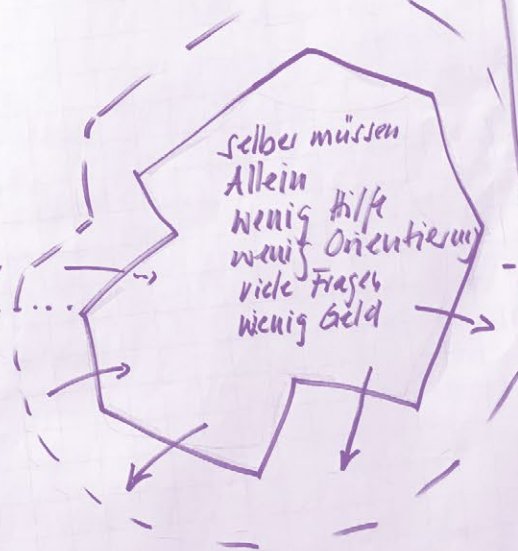 selber müssen
Allein
wenig Hilfe
wenig Orientierung
viele Fragen
wenig Geld